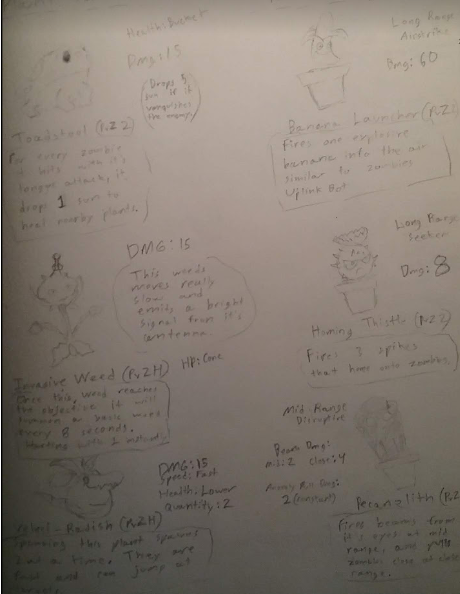 Health: Bucket
DMG: 15
(Drops 5
sun if it
vanquishes
the enemy)
Toadstool (PvZ 2)
For every zombie
it hits with it's
longue attack, it
drops 1 sun to
heal nearby plants.
Long Range
Airstrike
Dmg: 60
Banana Launcher (PvZ
fires one explosive
banana into the air
similar to zombies
Uplink Bot
DMG: 15
This weed
moves really
slow and
emits a bright
signal from it's
antenna.
HP: Cone
Invasive Weed (PvZH)
Once this weed reaches
the objective it will
summon a basic weed
every 8 seconds.
Starting with 1 instantly
Long Range
Seeker
Dmg: 8
Homing Thistle (PvZ 2)
Fires 3 spikes
that home onto zombies.
DMG: 15
Speed: Fast
Health: Lower
Quantity: 2
-Radish (PvZH)
this plant spawns
at a time. They are
fast and can jump at
Mid Range
Disruptive
Beam Dmg:
Mid: 2 Close: 4
Dmg:
2 (constant)
(PvZH)
Fires beams from
it's eyes at mid
range, and pulls
zombies close at close
range.